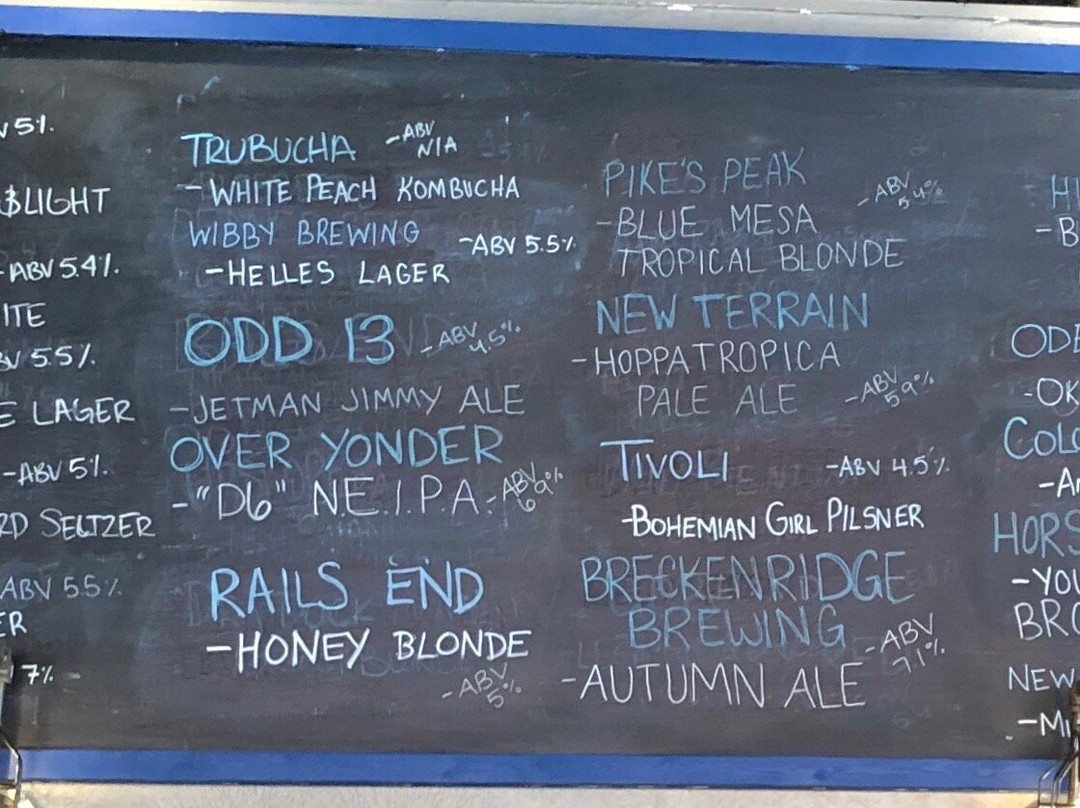 5%.
$LIGHT
-ABV 5.4%.
ITE
5.5%.
E LAGER
-ABV 5%.
RD SELTZER
ABV 5.5%
ER
7%
TRUBUCHA -ABV N/A
-WHITE PEACH KOMBUCHA
WIBBY BREWING -ABV 5.5%
-HELLES LAGER
ODD 13 -ABV 4.5%
-JETMAN JIMMY ALE
OVER YONDER
-"D6" N.E.I.P.A. -ABV 6.9%
RAILS END
-HONEY BLONDE
-ABV 5%
PIKE'S PEAK
-ABV 5.4%
-BLUE MESA
TROPICAL BLONDE
NEW TERRAIN
-HOPPATROPICA
PALE ALE -ABV 5.9%
TIVOLI -ABV 4.5%
-BOHEMIAN GIRL PILSNER
BRECKENRIDGE
BREWING -ABV 7.1%
-AUTUMN ALE
H
-B
ODE
-OK
COLO
-A
HORS
-YOU
BRO
NEW
-MI